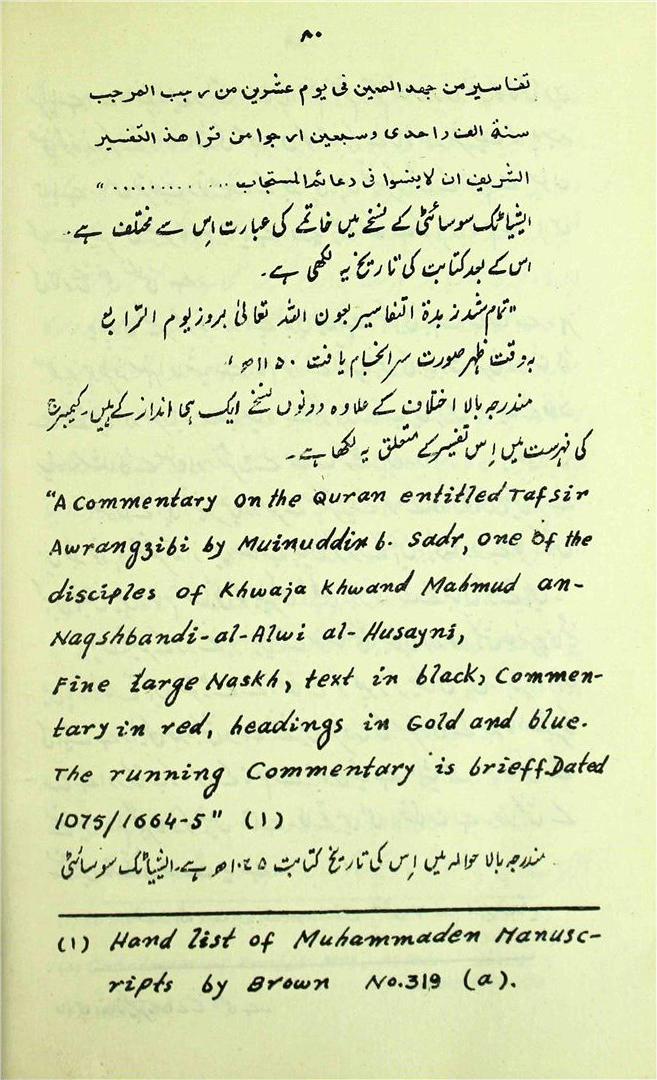 ۸۰
تفاسیر من جهد المعین فی یوم عشرین من رجب المرجب
سنة الف واحدی وسبعین ارجوا من قرا هذ التفسیر
الشریف ان لاینسوا فی دعائم المستجاب ............ "
ایشیاٹک سوسائٹی کے نسخے میں خاتمے کی عبارت اس سے مختلف ہے۔
اس کے بعد کتابت کی تاریخ یہ لکھی ہے۔
"تمام شد زبدة التفاسیر بعون اللہ تعالیٰ بروز یوم الرابع
بوقت ظہر صورت سرانجام یافت ۱۱۵۰ھ "
مندرجہ بالا اختلاف کے علاوہ دونوں نسخے ایک ہی انداز کے ہیں۔ کیمبرج
کی فہرست میں اِس تفسیر کے متعلق یہ لکھا ہے۔
"A Commentary on the Quran entitled Tafsir
Awrangzibi by Muinuddin b. Sadr, one of the
disciples of Khwaja Khwand Mahmud an-
Naqshbandi-al-Alwi al-Husayni,
Fine Large Naskh, text in black, Commen-
tary in red, headings in Gold and blue.
The running Commentary is brieff. Dated
1075/1664-5" (1)
مندرجہ بالا حوالہ میں اِس کی تاریخ کتابت ۱۰۷۵ھ ہے۔ ایشیاٹک سوسائٹی
(1) Hand list of Muhammaden Manusc-
ripts by Brown No.319 (a).